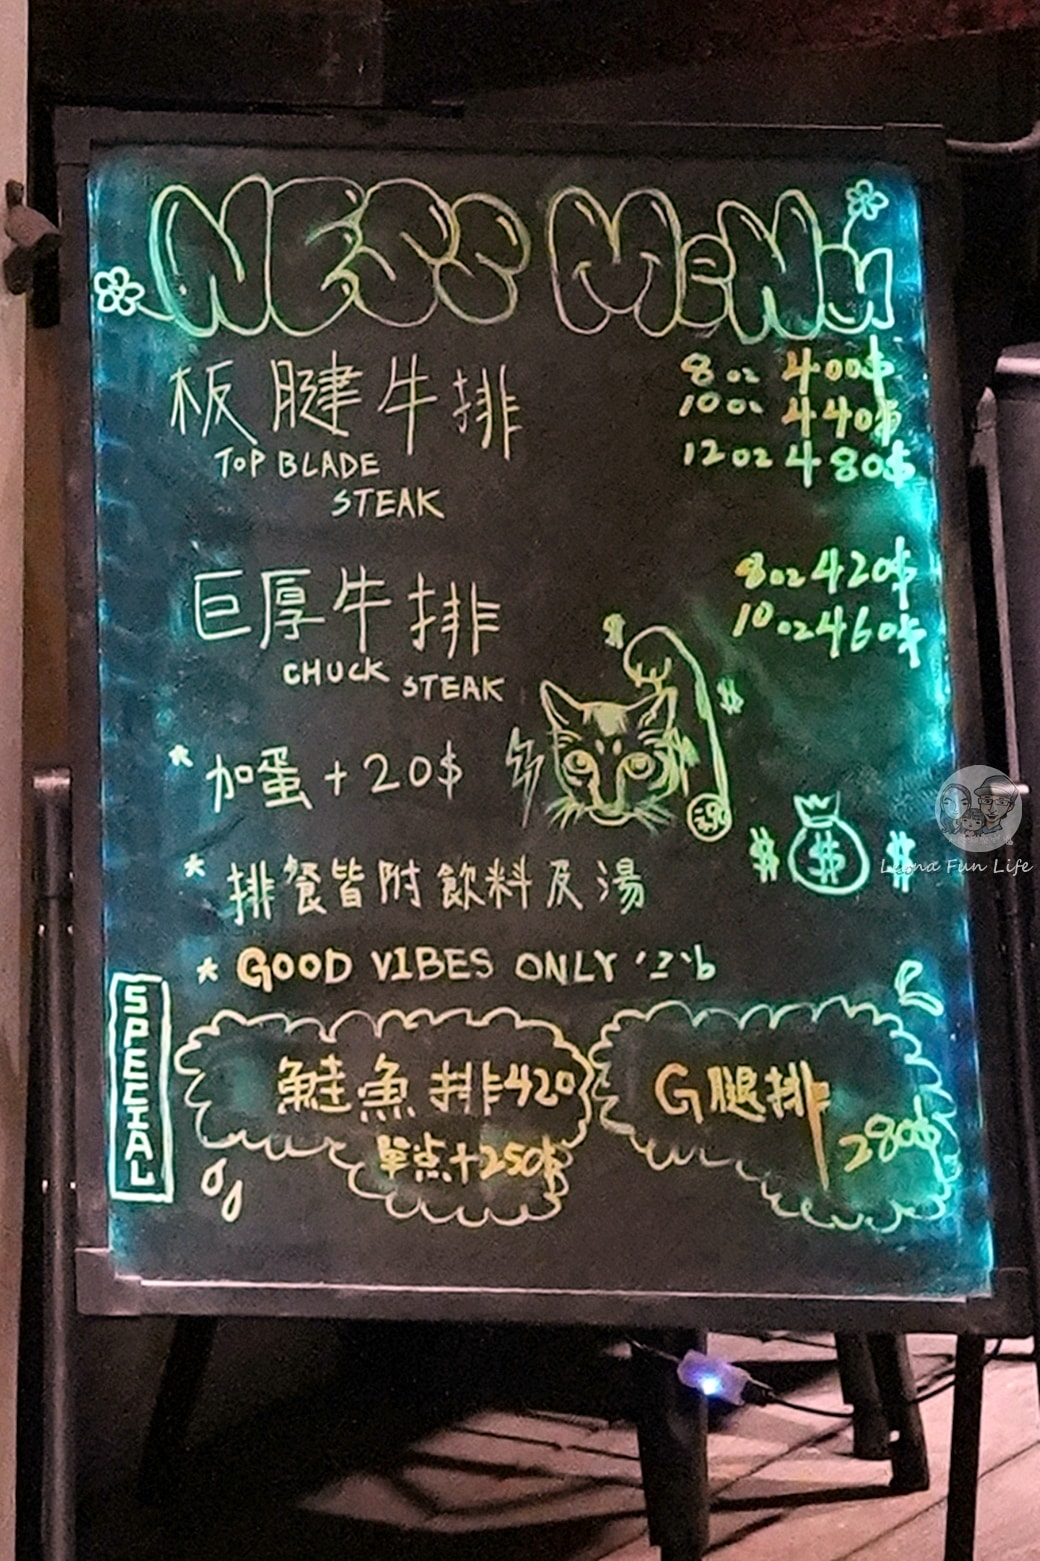 NESS MeNu
板腱牛排
8oz 400$
10oz 440$
TOP BLADE
12oz 480$
STEAK
巨厚牛排
8oz 420$
10oz 460$
CHUCK STEAK
* 加蛋+20$
$
$
$ $ $
* 排餐皆附飲料及湯
Leona Fun Life
* GOOD VIBES ONLY
SPECIAL
鮭魚排420
單点+250$
G腿排
280$